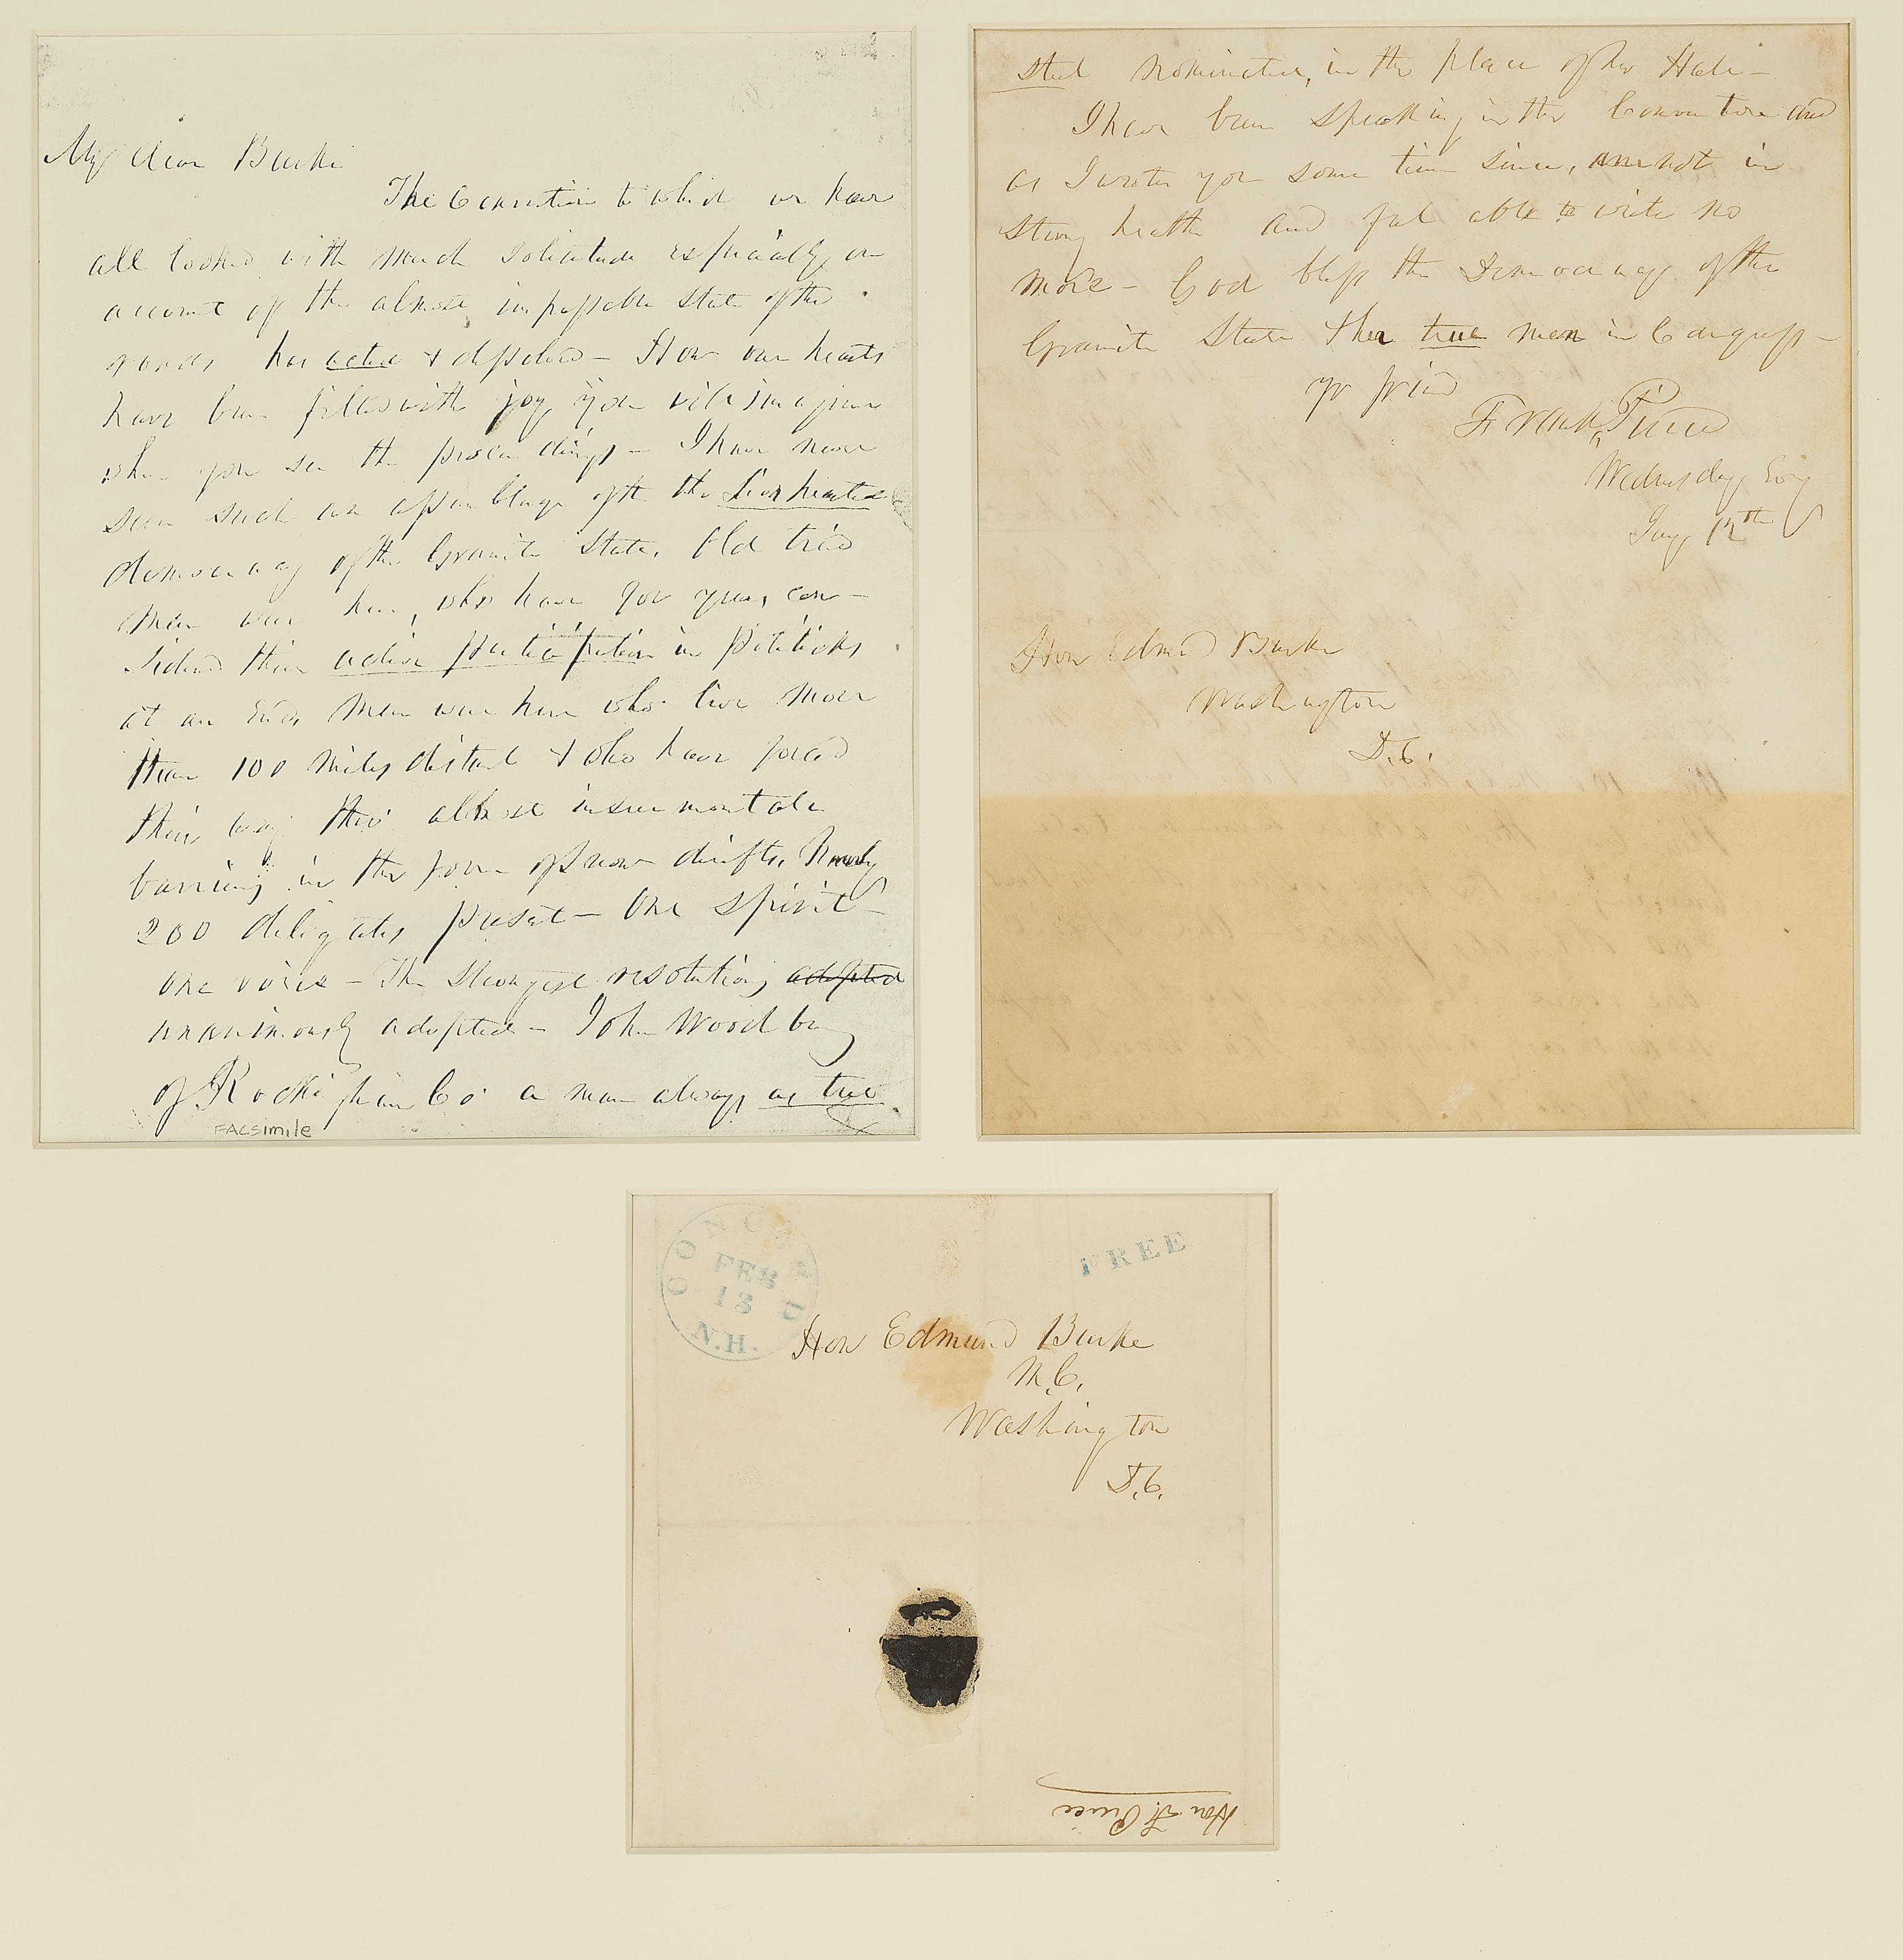 My dear Burke
The Convention to which we have
all looked with much solicitude especially on
account of the almost impassable state of the
roads has acted & dispersed - How our hearts
have been filled with joy, you will imagine
when you see the proceedings - I have never
seen such an assemblage of the the Lion hearted
democracy of the Granite State. Old tried
men were here, who have for years, con-
sidered their active participation in politicks
at an end, Men were here who live more
than 100 miles distant & who have forced
their way thro' almost insurmountable
barriers in the form of snow drifts, Nearly
200 delegates present - One spirit -
one voice - The strongest resolutions adopted
unanimously adopted - John Woodbury
of Rockingham Co. a man always as true
FACSimile
steel nominated, in the place of Hale -
I have been speaking in the Convention and
as I wrote you some time since, am not in
strong health and feel able to write no
more - God bless the Democracy of the
Granite State & her true men in Congress -
yr friend
Frank Pierce
Wednesday Evg
12th
Hon Edmund Burke
Washington
D.C.
CONCORD
FEB
13
N.H.
FREE
Hon Edmund Burke
M.C.
Washington
D.C.
Hon F. Pierce